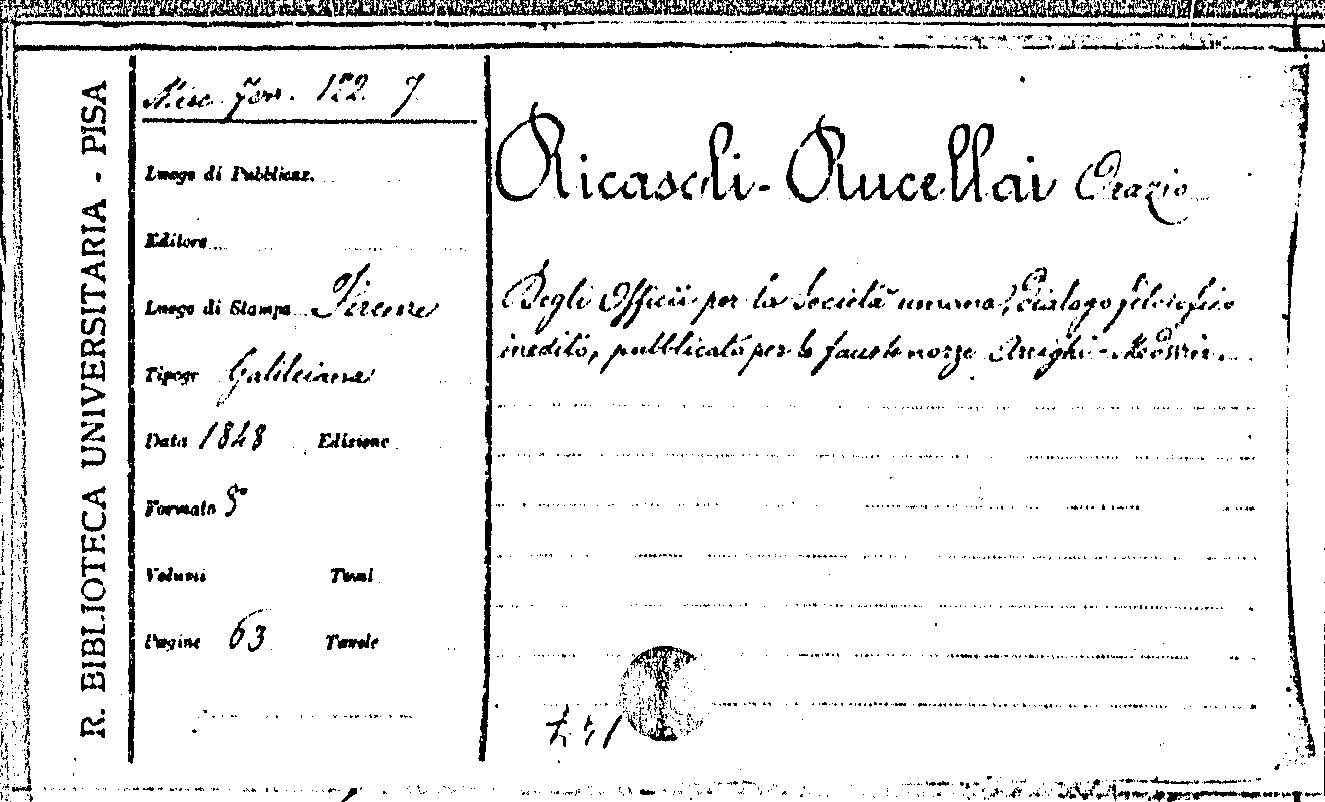 R. BIBLIOTECA UNIVERSITARIA - PISA
Misc. Ferr. 122. 7
Luogo di Pubblicaz.
Editore
Luogo di Stampa Firenze
Tipogr Galileiana
Data 1848 Edizione
Formato 8°
Volumi Tomi
Pagine 63 Tavole
Ricasoli-Rucellai Orazio
Degli Officii per la Società umana, dialogo filosofico
inedito, pubblicato per le fauste nozze Arrighi-